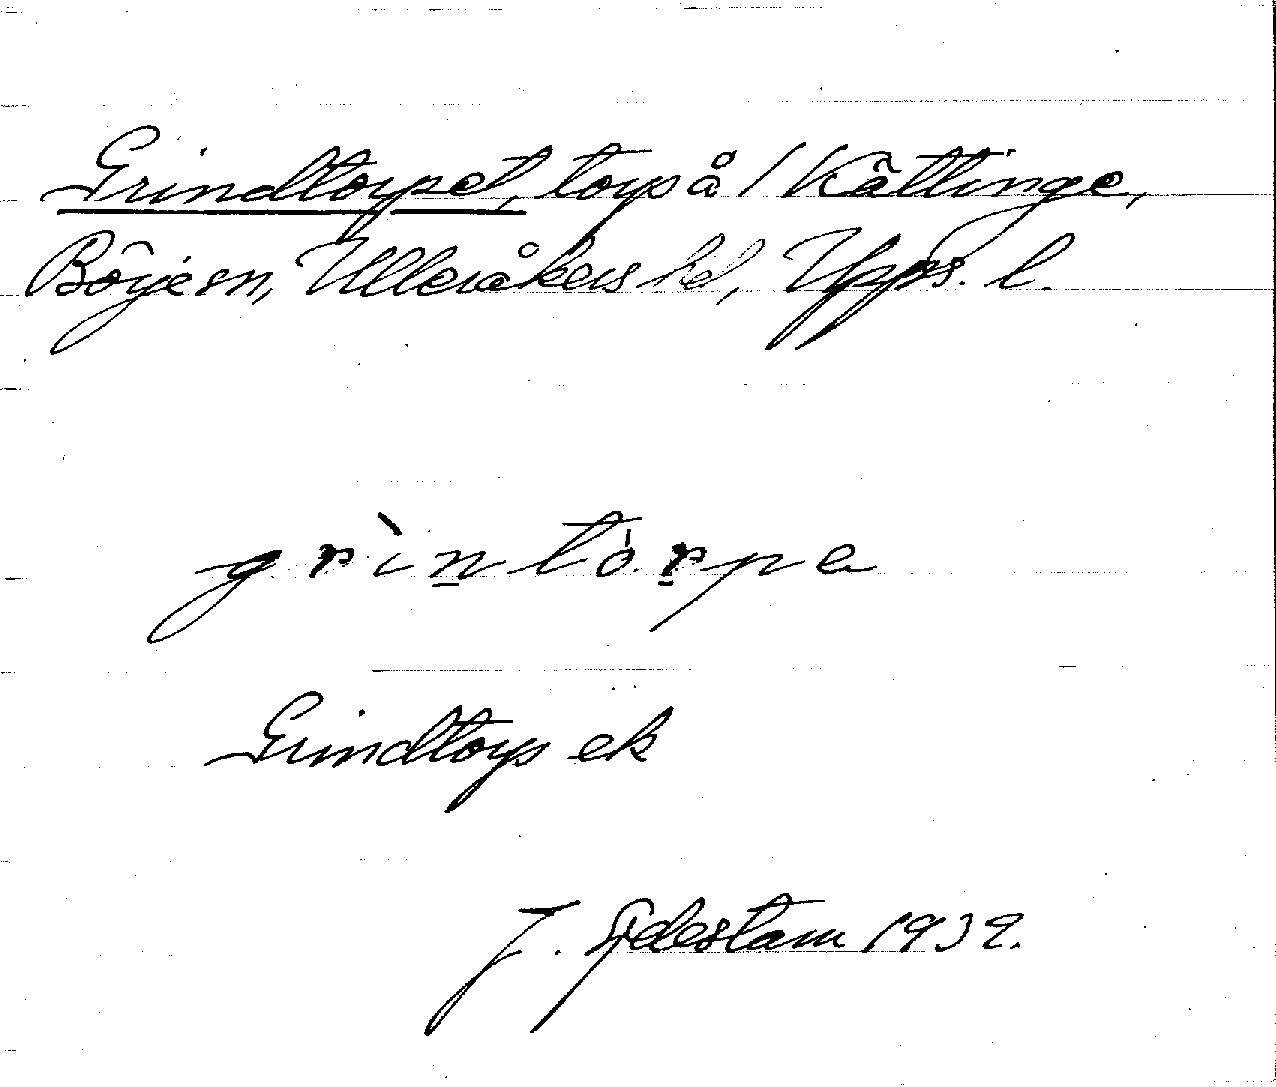 Grindtorpet, torp å / Kättinge,
Börje sn, Ulleråkers hd, Upps. l.
grìntòrpe
Grindtorp ek
J. Sjdestam 1939.